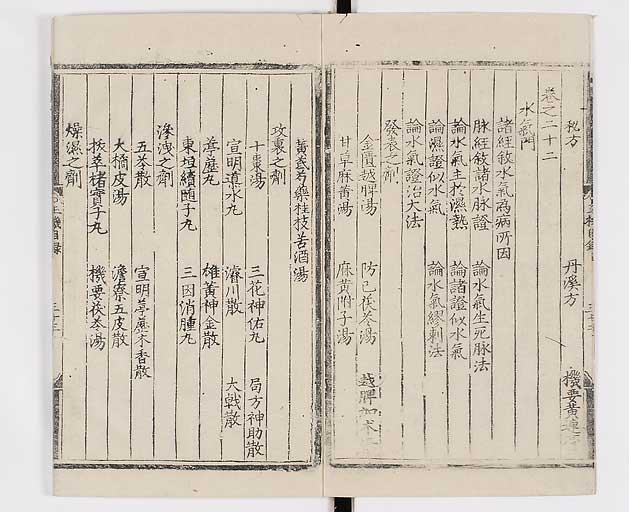 秘方　丹溪方　機要黃連
卷之二十二
水氣門
諸經敘水氣爲病所因
脉經敘諸水脉證　論水氣生死脉法
論水氣主於濕熱　論諸證似水氣
論濕證似水氣　論水氣繆刺法
論水氣證治大法
發表之劑
金匱越脾湯　防已茯苓湯　越脾加朮
甘草麻黃湯　麻黃附子湯
黃芪芍藥桂枝苦酒湯
攻裏之劑
十棗湯　三花神佑丸　局方神助散
宣明導水丸　濬川散　大戟散
善應丸　雄黃神金散
東垣續隨子丸　三因消腫丸
滲洩之劑
五苓散　宣明葶藶木香散
大橘皮湯　澹寮五皮散
拔萃楮實子丸　機要茯苓湯
燥濕之劑
目錄
三十三